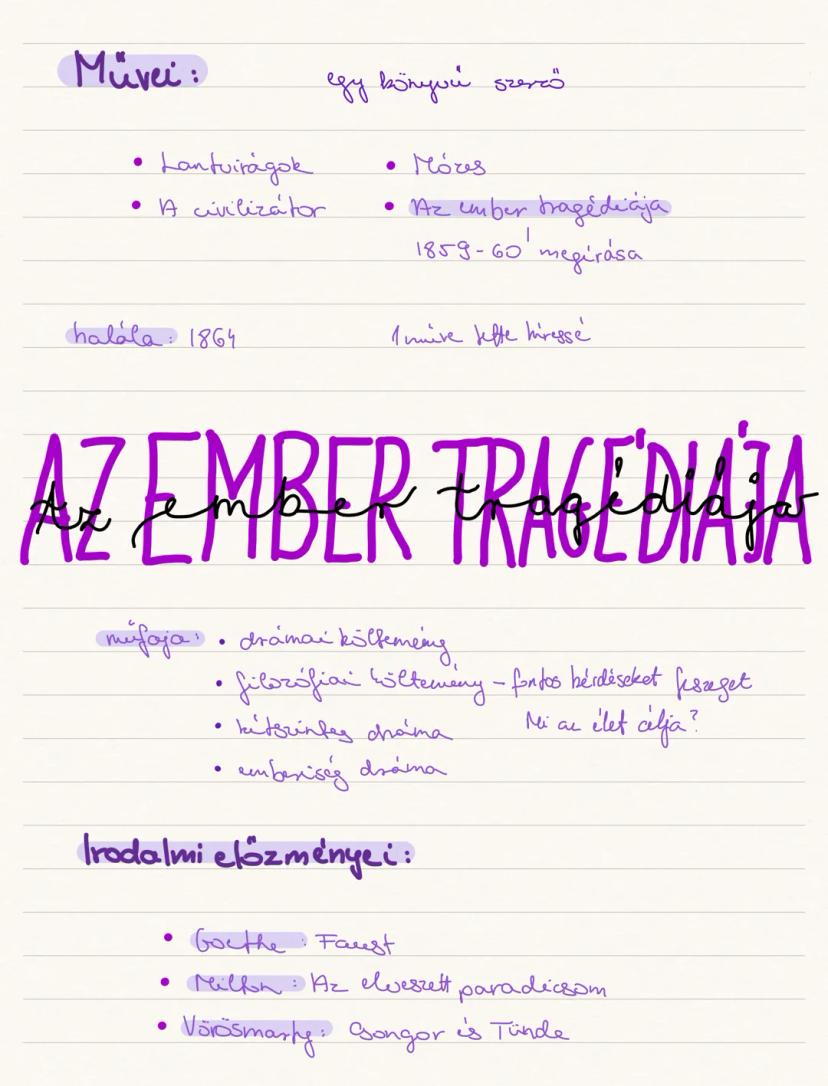 Művei:
egy könyvű szerző
• Lantvirágok
• Mózes
• A civilizátor
• Az ember tragédiája
1859-60' megírása
halála: 1864
1 műve tette híressé
AZ EMBER TRAGÉDIÁJA
Az ember tragédiája
műfaja: • drámai költemény
• filozófiai költemény – fontos kérdéseket feszeget
Mi az élet célja?
• kétszintes dráma
• emberiség dráma
Irodalmi előzményei:
• Goethe: Faust
• Milton: Az elveszett paradicsom
• Vörösmarty: Csongor és Tünde